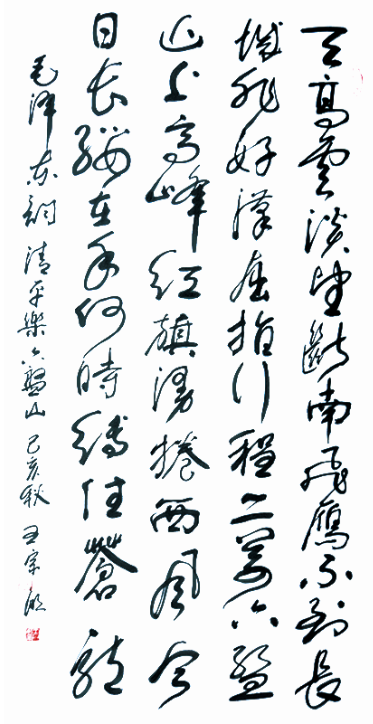 天高雲淡望斷南飛鴈不到長
城非好漢屈指行程二萬六盤
山上高峰紅旗漫捲西風今
日長纓在手何時縛住蒼龍
毛澤東詞清平樂六盤山己亥秋王宗